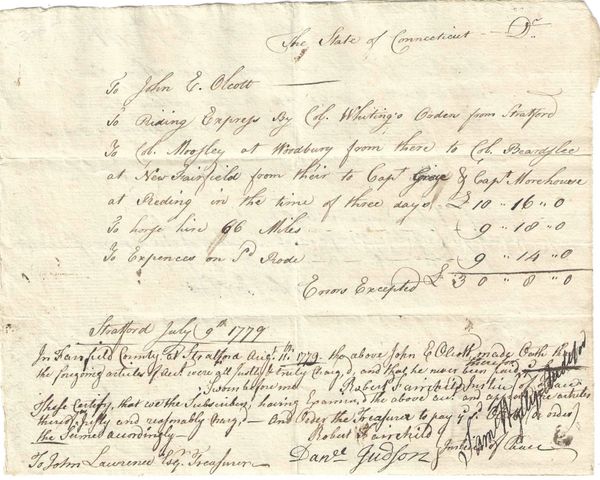 The State of Connecticut — Dr
To John E. Olcott
To Riding Express By Col. Whiting's Orden from Stratford
To Col. Moosley at Woodbury from there to Col. Beardslee
at New Fairfield from their to Capt Gray & Capt. Morehouse
at Reding in the time of three days £ 10 " 16 " 0
To horse hire 66 Miles 9 " 18 " 0
To Expences on Sd Rode 9 " 14 " 0
Errors Excepted £ 30 " 8 " 0
Stratford July 9th 1779
In Fairfield County at Stratford Augt. 11th. 1779. the above John E Olcott made Oath that
the foregoing articles of Acct were all Just & truly Charg'd, and that he never been paid therefor
Sworn before me Robert Fairchild Justice of Peace
These Certify, that we the Subscribers, having Examind the above acct and approve the articles
thereof Justly and reasonably Charg'd — And Order the Treasurer to pay
the Same acordingly
Robert Fairchild
Danel Judson Justices of Peace
Sam
To John Lawrence Esq. Treasurer